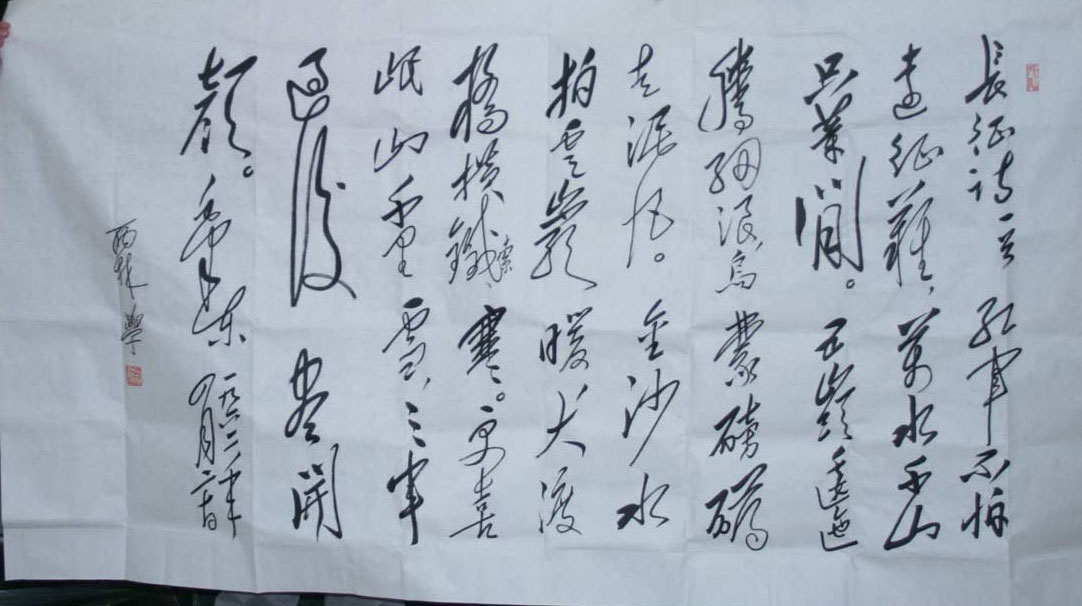 長征詩一首 紅軍不怕
遠征難，萬水千山
只等閒。五嶺逶迤
騰細浪，烏蒙磅礴
走泥丸。金沙水
拍雲巖暖大渡
橋橫鐵索寒。更喜
岷山千里雪，三軍
過後盡開
顏。毛澤東
一九六二年
四月二十日
西林 學